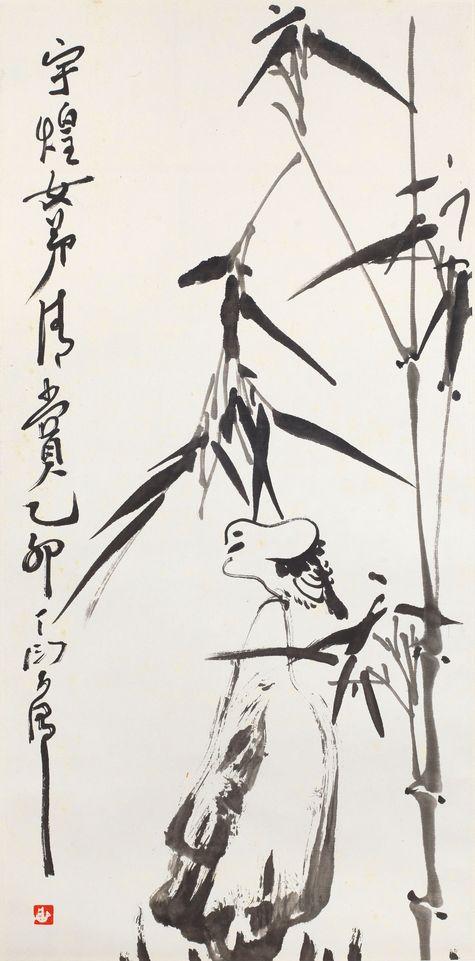 宇煌女弟清賞乙卯丁衍庸